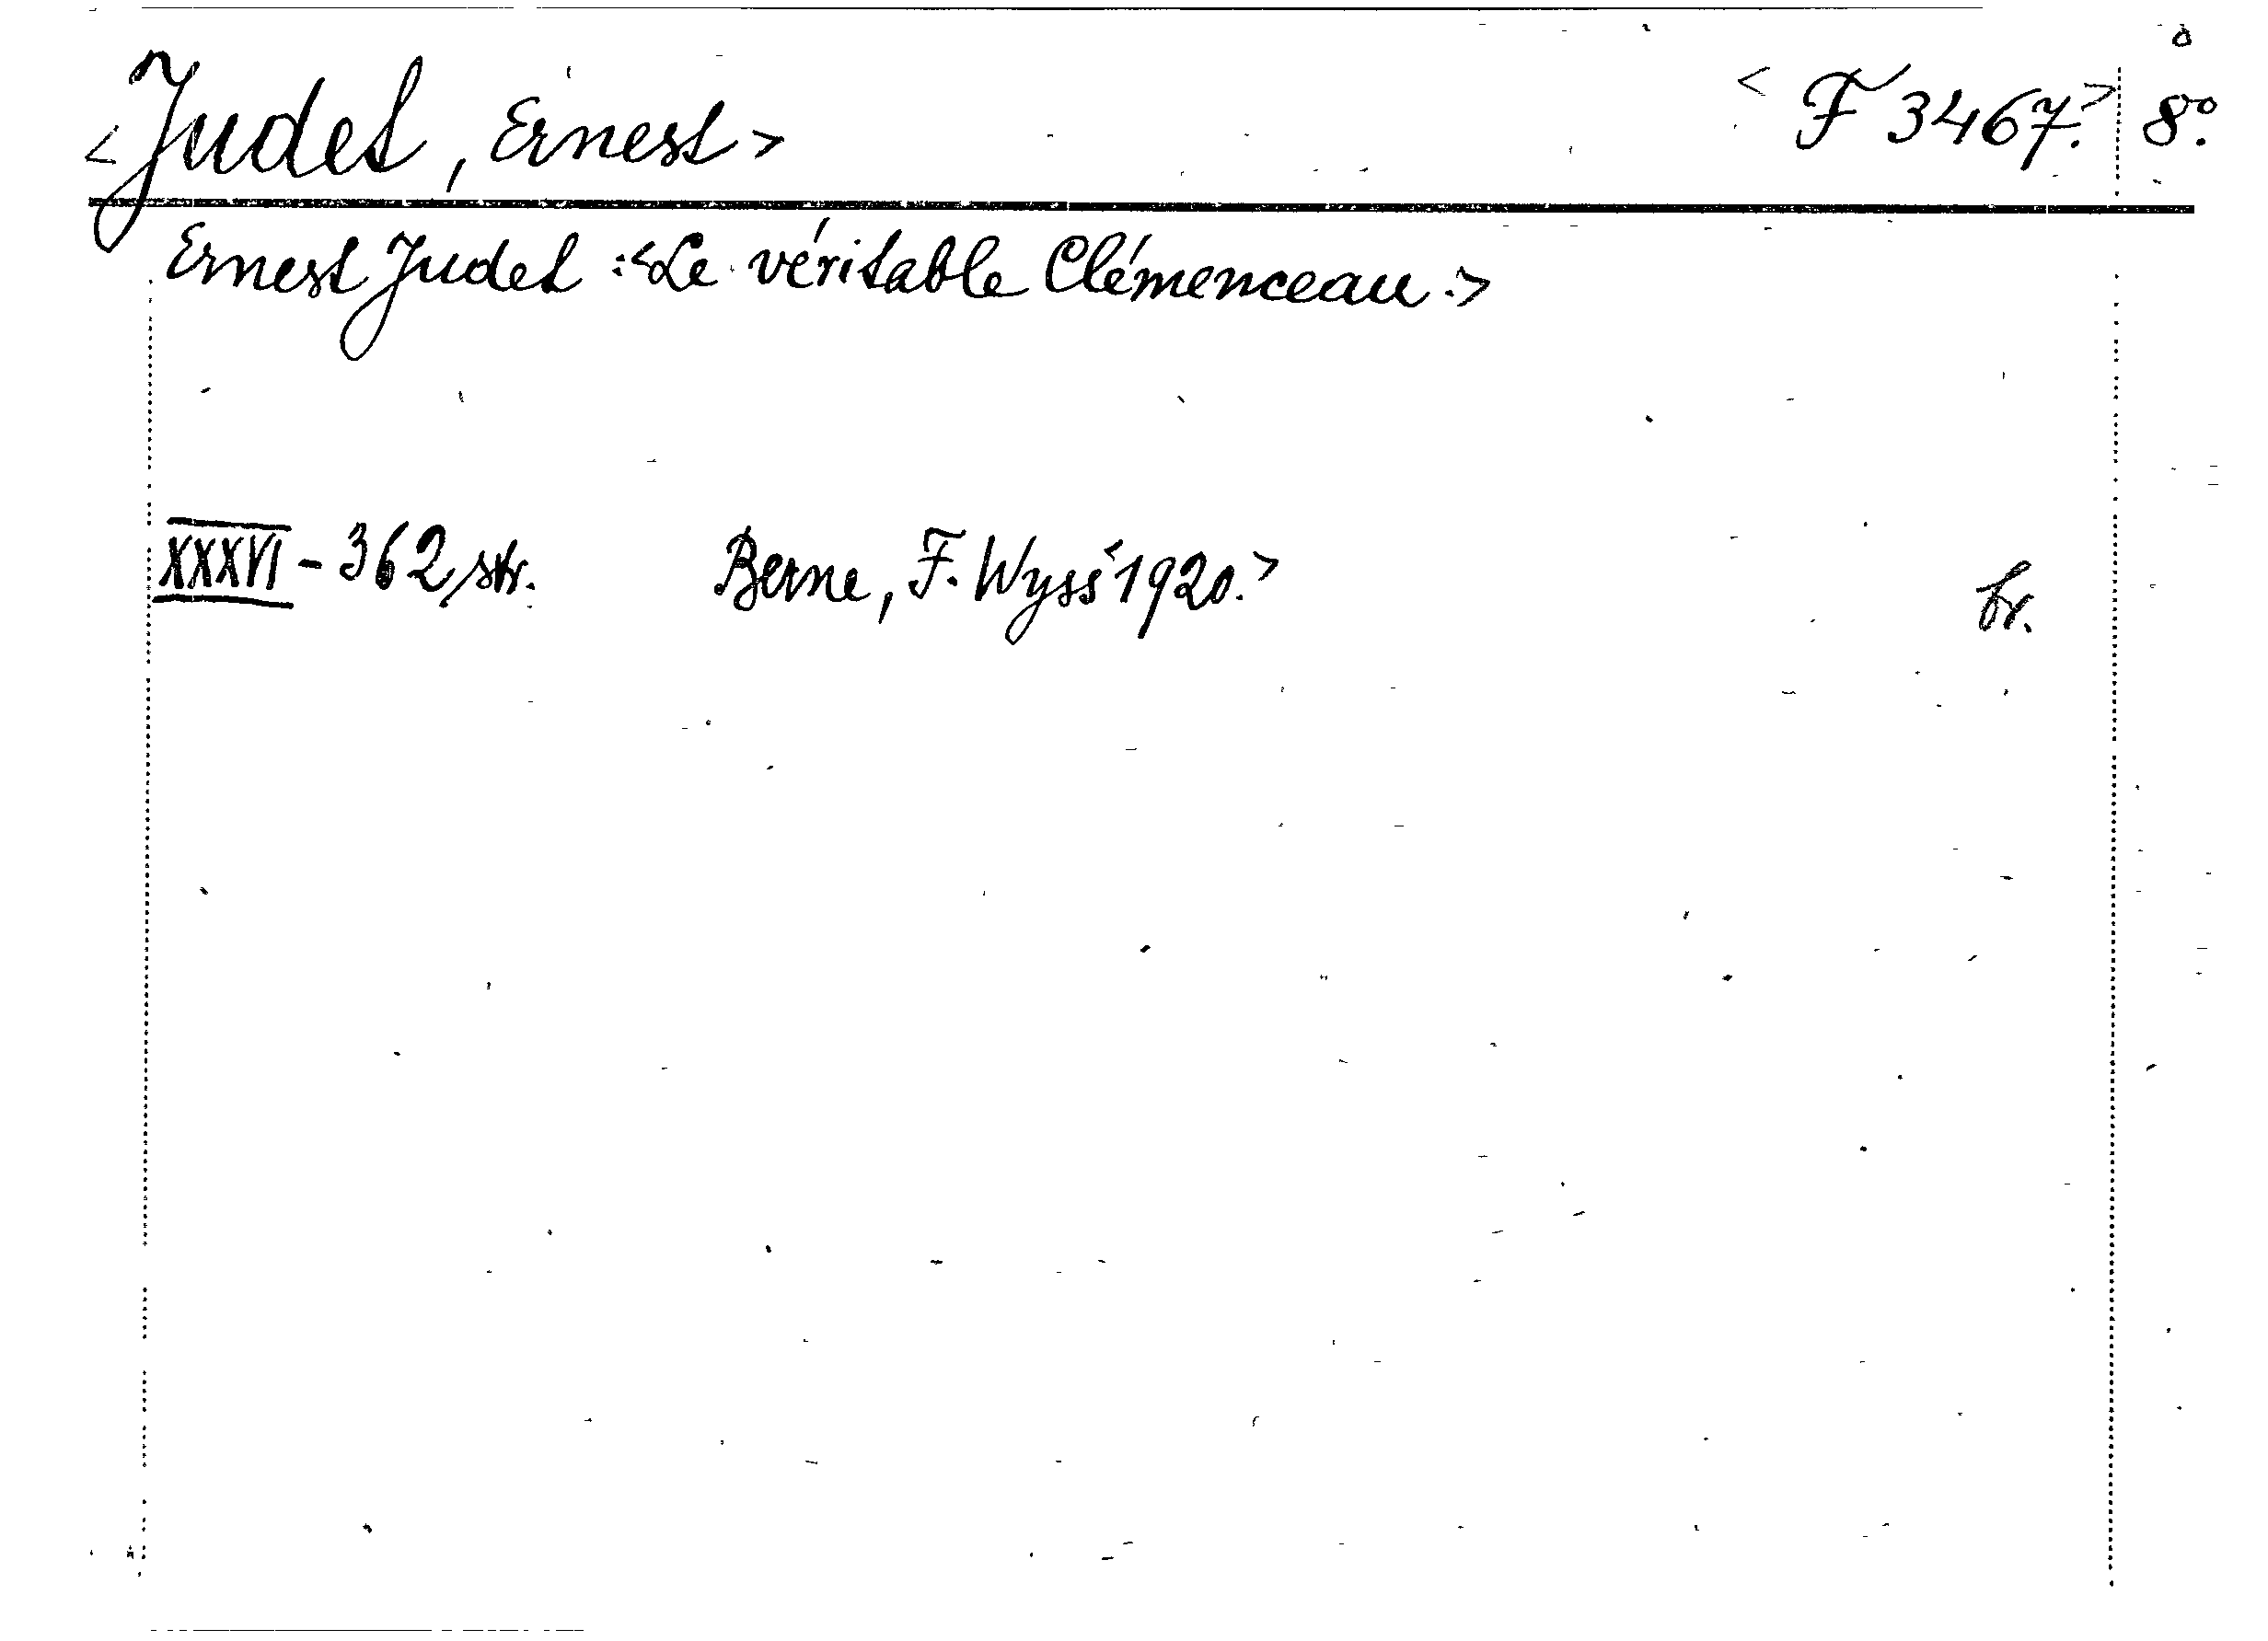 <Judet, Ernest> <F 3467.> 8º.
Ernest Judet :<Le véritable Clémenceau.>
XXXVI - 362 str. Berne, F. Wyss <1920.> br.